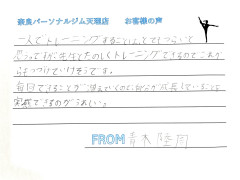 奈良パーソナルジム天理店 お客様の声
一人でトレーニングすることは、とてもつらいと
思うってが先生とたのしくトレーニングできるのでこれか
らもつづけていけそうです。
毎回できることが増えていくので自分が成長していることを
実感できるのがうれしい。
FROM 青木 陸周